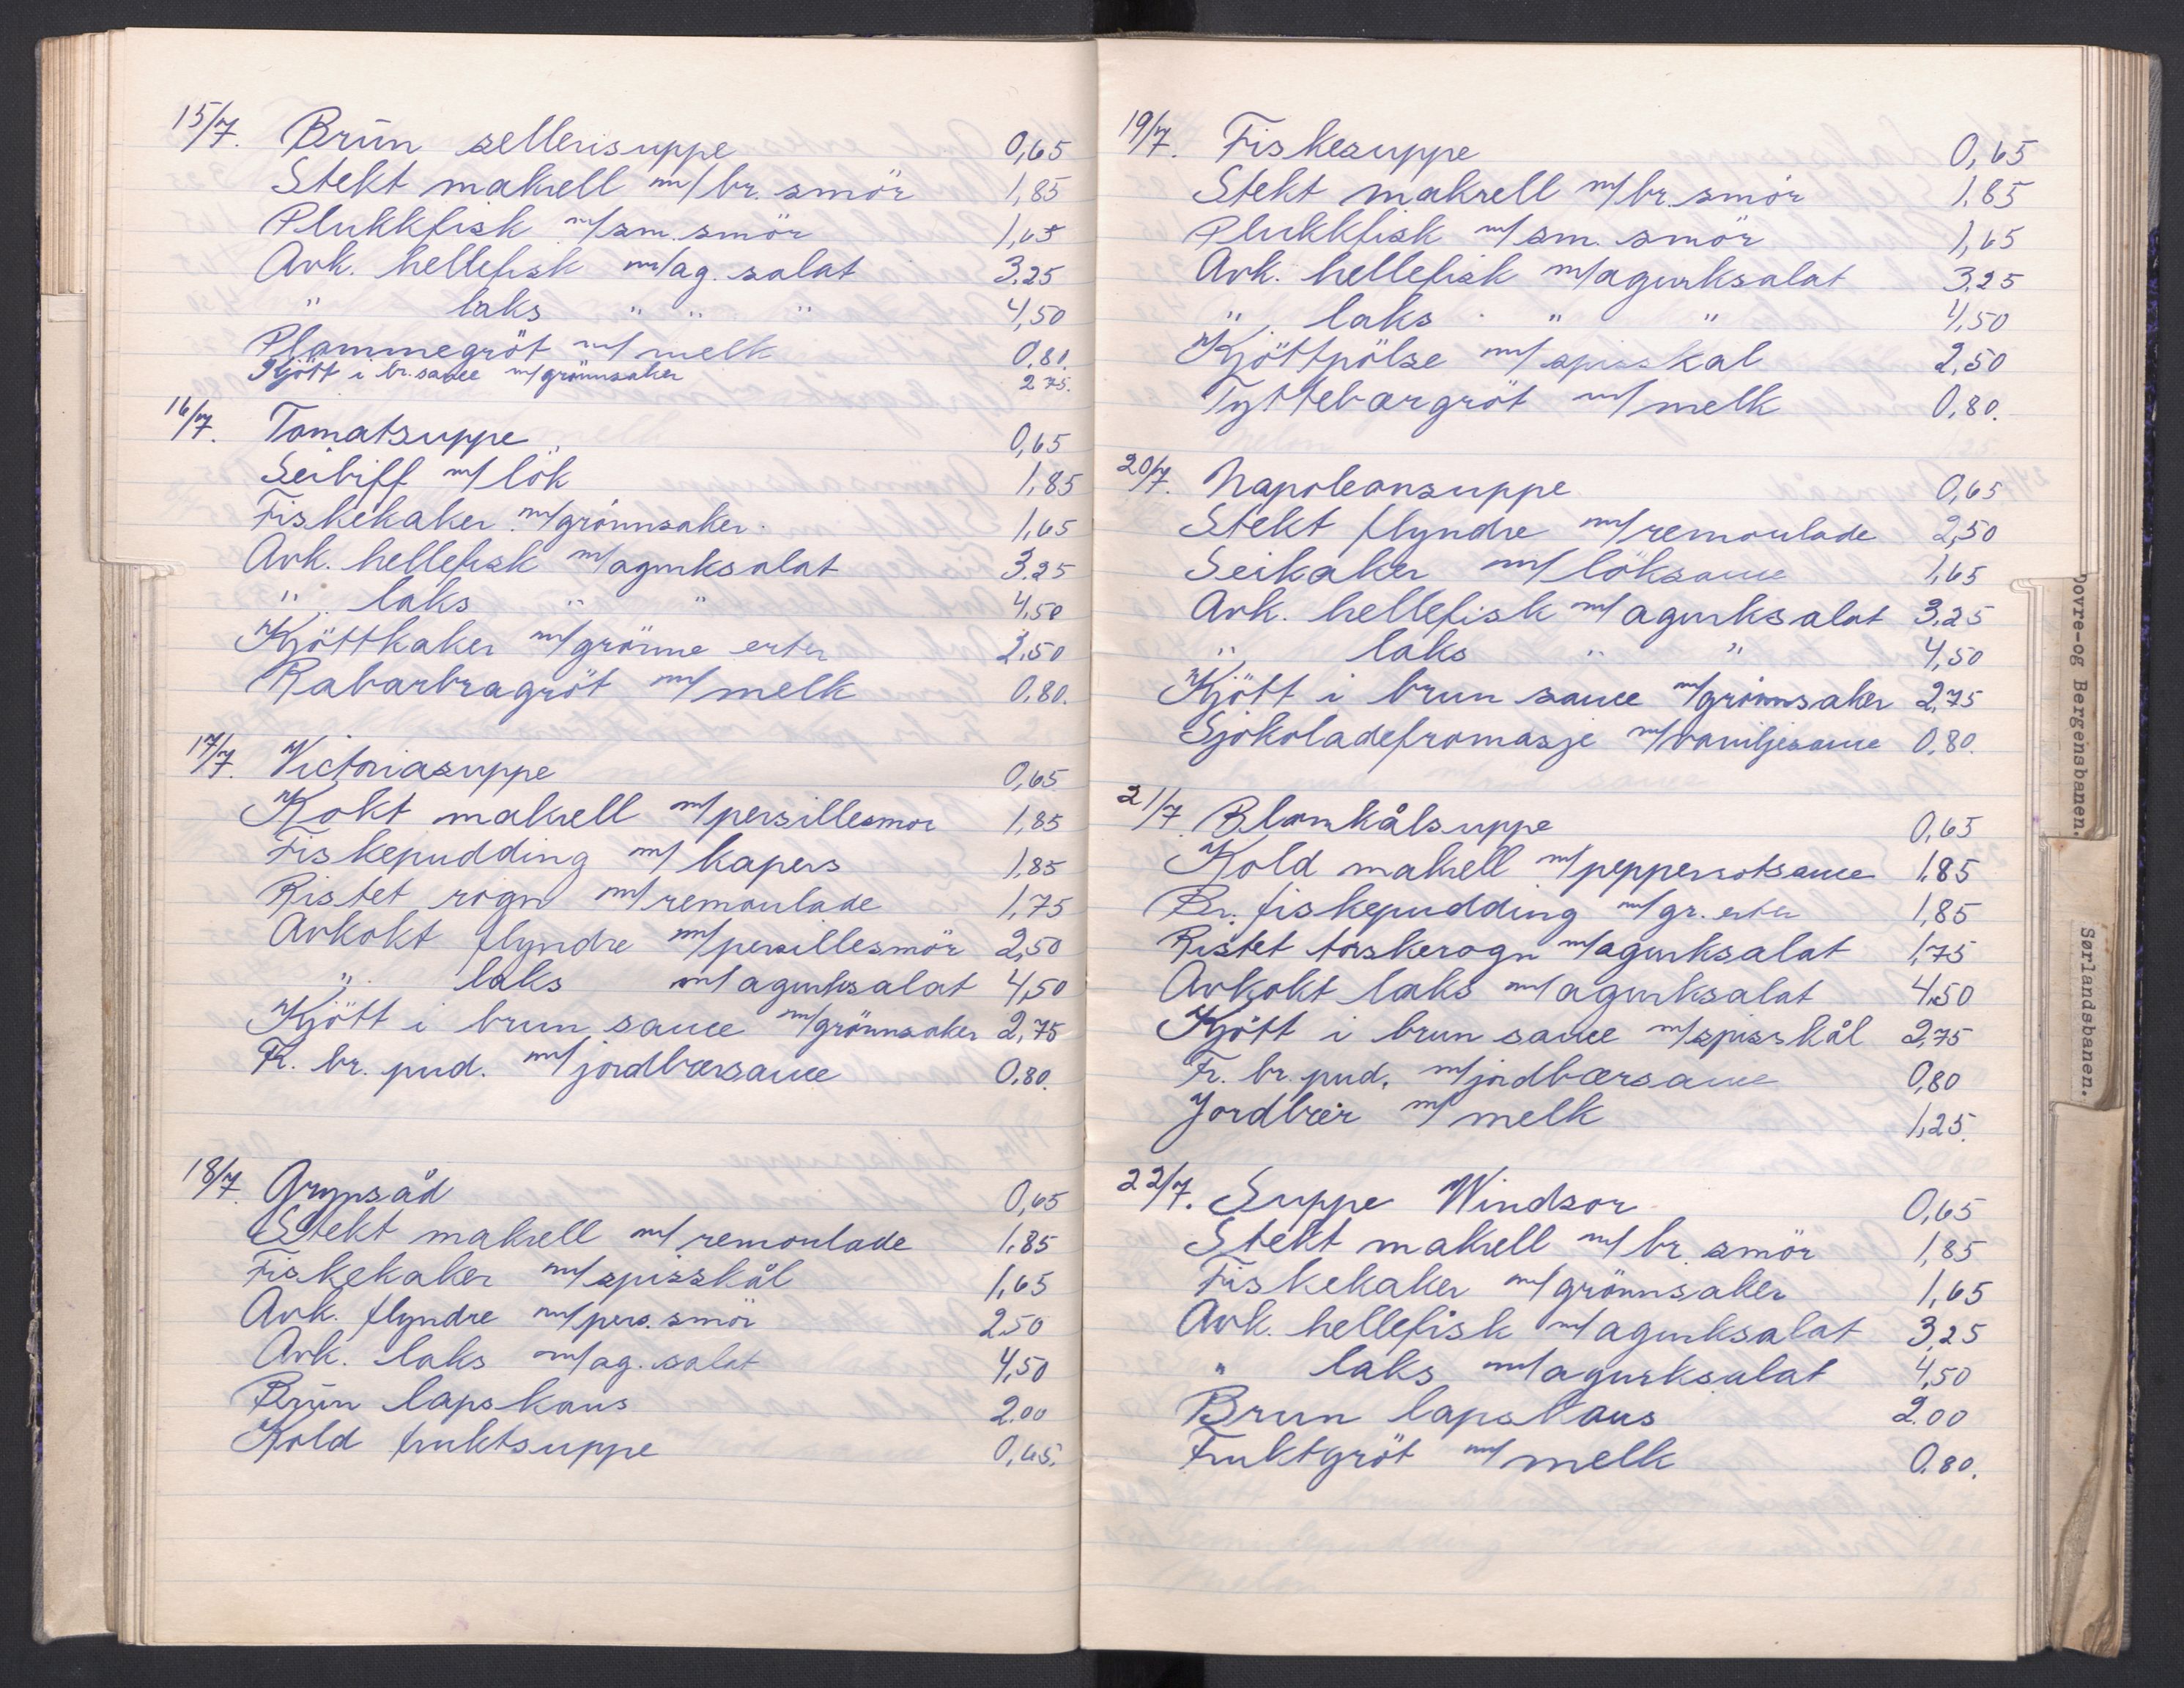 15/7. Brun sellerisuppe 0,65
Stekt makrell m/ br. smör 1,85
Plukkfisk m/ sm. smör 1,65
Avk. hellefisk m/ ag. salat 3.25
" laks " " " 4,50
Plommegröt m/ melk 0.80.
Kjött i br. sauce m/ grönnsaker 2 75.
16/7. Tomatsuppe 0,65
Seibiff m/ lök 1,85
Fiskekaker m/ grönnsaker 1,65
Avk. hellefisk m/ agurksalat 3.25
" laks " " 4,50
Kjöttkaker m/ grönne erter 2.50
Rabarbragröt m/ melk 0.80.
17/7. Victoriasuppe 0,65
Kokt makrell m/ persillesmør 1,85
Fiskepudding m/ kapers 1,85
Ristet rogn m/ remoulade 1,75
Avkokt flyndre m/ persillesmör 2,50
" laks m/ agurksalat 4,50
Kjött i brun sauce m/ grönnsaker 2,75
Fr. br. pud. m/ jordbærsauce 0.80.
18/7. Grynsåd 0,65
Stekt makrell m/ remoulade 1.85
Fiskekaker m/ spisskål 1,65
Avk. flyndre m/ pers. smör 2.50
Avk. laks m/ ag. salat 4,50
Brun lapskaus 2.00
Kold fruktsuppe 0,65.
19/7. Fiskesuppe 0,65
Stekt makrell m/ br. smör 1.85
Plukkfisk m/ sm. smör 1,65
Avk. hellefisk m/ agurksalat 3.25
" laks " " 4,50
Kjöttpölse m/ spisskål 2,50
Tyttebærgröt m/ melk 0,80.
20/7. Napoleonsuppe 0,65
Stekt flyndre m/ remoulade 2,50
Seikaker m/ löksauce 1,65
Avk. hellefisk m/ agurksalat 3.25
" laks " " 4,50
Kjött i brun sauce m/ grönnsaker 2,75
Sjokoladefromasje m/ vaniljesauce 0,80.
21/7. Blomkålsuppe 0,65
Kold makrell m/ pepperrotsauce 1.85
Br. fiskepudding m/ gr. erter 1,85
Ristet torskerogn m/ agurksalat 1,75
Avkokt laks m/ agurksalat 4.50
Kjött i brun sauce m/ spisskål 2,75
Fr. br. pud. m/ jordbærsauce 0,80
Jordbær m/ melk 1,25.
22/7. Suppe Windsor 0,65
Stekt makrell m/ br. smör 1,85
Fiskekaker m/ grönnsaker 1,65
Avk. hellefisk m/ agurksalat 3,25
" laks m/ agurksalat 4,50
Brun lapskaus 2.00
Fruktgröt m/ melk 0.80.
Dovre-og Bergensbanen.
Sørlandsbanen.